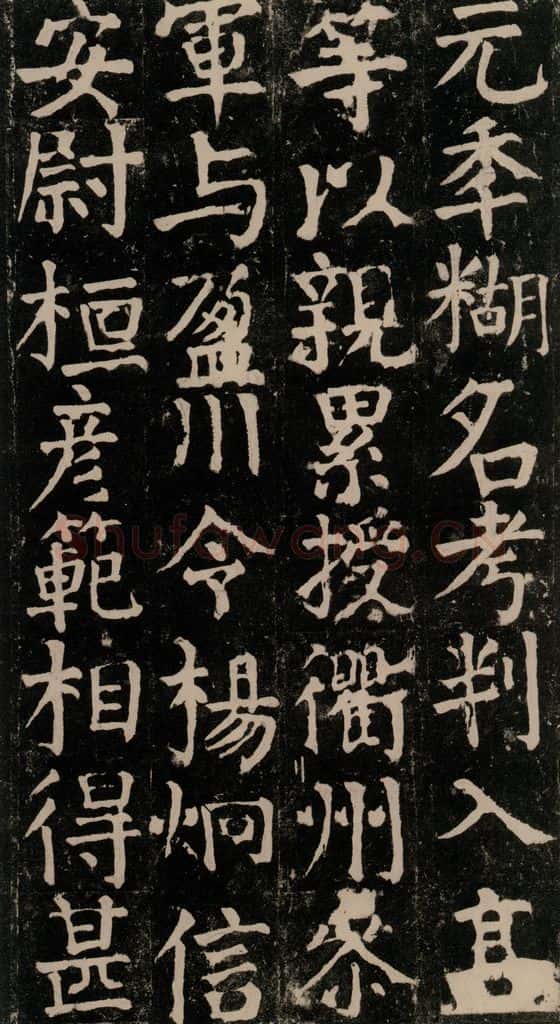 元年糊名考判入高
等以親累授衢州参
軍与盈川令楊炯信
安尉桓彦範相得甚
shufawang.cn